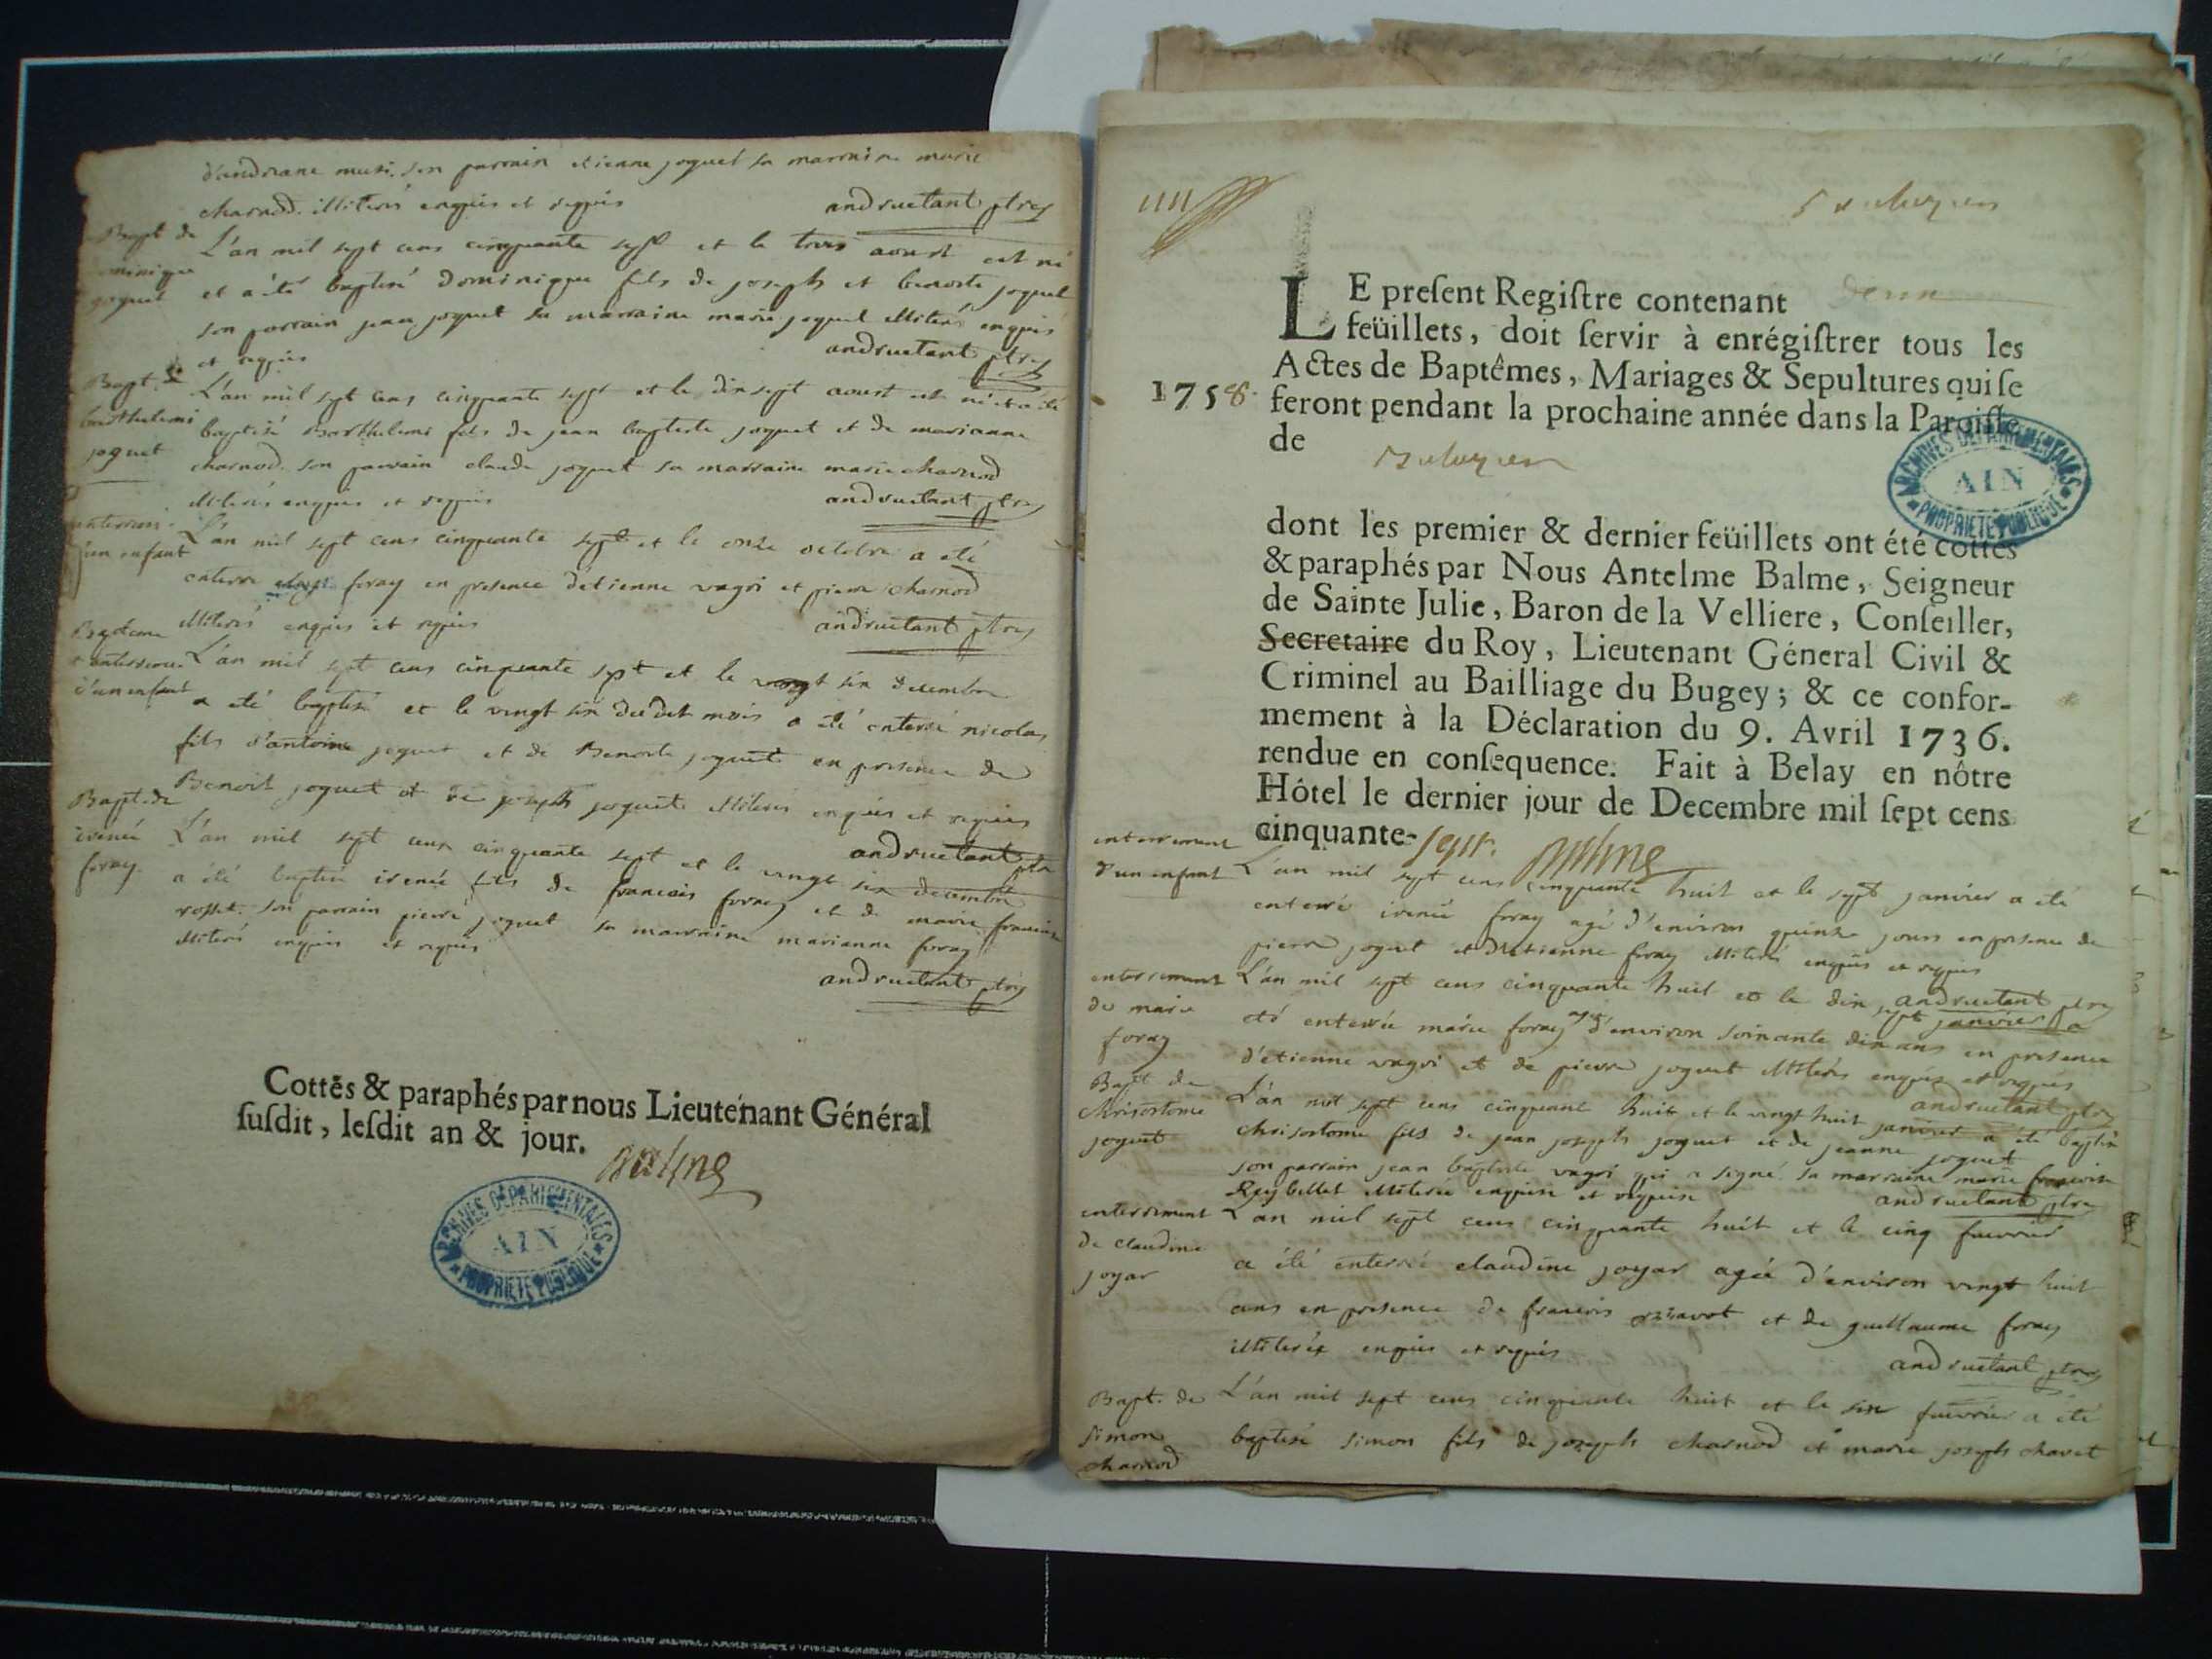 d'andréane musi. son parrain etienne joguet sa marraine marie
charnod. illiterés enquis et requis andruetant ptre
Bapt de
joguet
L'an mil sept cens cinquante sept et le trois aoust est né
et a été baptisé dominique fils de joseph et benoite joguet
son parrain jean joguet sa marraine marie joguet illiterés enquis
et requis andruetant ptre
Bapt. de
barthelemi
joguet
L'an mil sept cens cinquante sept et le dixsept aoust est né et a été
baptisé Barthelemi fils de jean baptiste joguet et de marianne
charnod. son parrain claude joguet sa marraine marie charnod
illiterés enquis et requis andruetant ptre
d'un enfant
L'an mil sept cens cinquante sept et le onze octobre a été
enterré foray en presence d'etienne vagri et pierre charnod
illiterés enquis et requis andruetant ptre
Baptême
et enterrem.
d'un enfant
L'an mil sept cens cinquante sept et le vingt six decembre
a été baptisé et le vingt six dudit mois a été enterré nicolas
fils d'antoine joguet et de Benoite joguet en presence de
Benoit joguet et de joseph joguet illiterés enquis et requis
andruetant ptre
Bapt. de
irenée
foray
L'an mil sept cens cinquante sept et le vingt six decembre
a été baptisé irenée fils de francois foray et de marie francoise
rosset. son parrain pierre joguet sa marraine marianne foray
illiterés enquis et requis
andruetant ptre
Cottés & paraphés par nous Lieutenant Général
susdit, lesdit an & jour.
Balme
ARCHIVES DEPARTEMENTALES
AIN
PROPRIETE PUBLIQUE
LE present Registre contenant deux
feüillets, doit servir à enrégistrer tous les
Actes de Baptêmes, Mariages & Sepultures qui se
1758. feront pendant la prochaine année dans la Paroisse
de
ARCHIVES DEPARTEMENTALES
AIN
PROPRIETE PUBLIQUE
dont les premier & dernier feüillets ont été cottés
& paraphés par Nous Antelme Balme, Seigneur
de Sainte Julie, Baron de la Velliere, Conseiller,
Secretaire du Roy, Lieutenant Géneral Civil &
Criminel au Bailliage du Bugey; & ce confor-
mement à la Déclaration du 9. Avril 1736.
rendue en consequence. Fait à Belay en nôtre
Hôtel le dernier jour de Decembre mil sept cens
cinquante-sept. Balme
enterrement
d'un enfant
L'an mil sept cens cinquante huit et le sept janvier a été
enterré irenée foray agé d'environ quinze jours en presence de
pierre joguet et d'etienne foray illiterés enquis et requis
andruetant ptre
enterrement
de marie
foray
L'an mil sept cens cinquante huit et le dix sept janvier a
été enterrée marie foray agée d'environ soixante dix ans en presence
d'etienne vagri et de pierre joguet illiterés enquis et requis
andruetant ptre
Bapt de
chrisostome
joguet
L'an mil sept cens cinquante huit et le vingt huit janvier a été baptisé
chrisostome fils de jean joseph joguet et de jeanne joguet
son parrain jean baptiste vagri qui a signé. sa marraine marie francoise
Reybellet illiterée enquise et requise andruetant ptre
enterrement
de claudine
joyar
L'an mil sept cens cinquante huit et le cinq fuevrier
a été enterrée claudine joyar agée d'environ vingt huit
ans en presence de francois et de guillaume foray
illiterés enquis et requis
andruetant ptre
Bapt. de
simon
charnod
L'an mil sept cens cinquante huit et le six fuevrier a été
baptisé simon fils de joseph charnod et marie joseph chavet